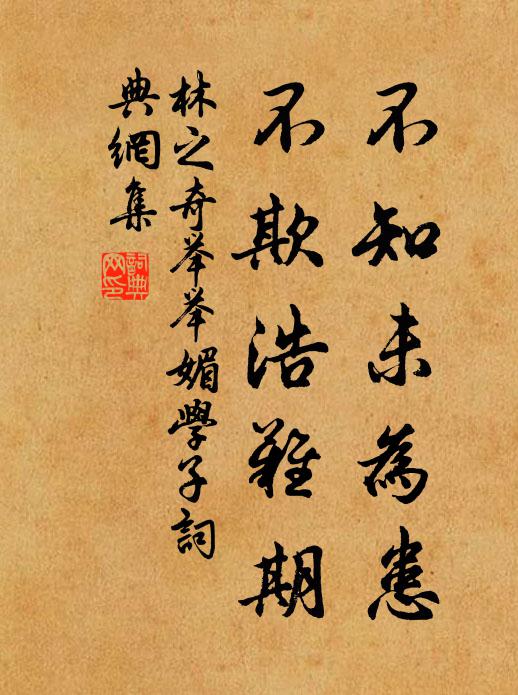 不知未為患
不欺浩難期
林之奇举举媚學子詞
典網集
詞典網印